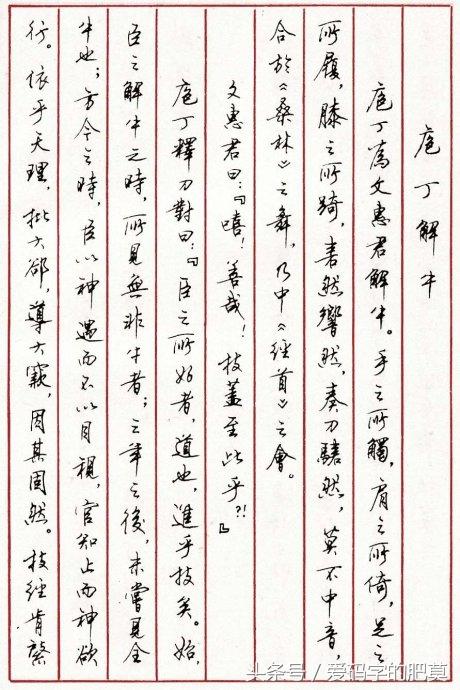 庖丁解牛
庖丁為文惠君解牛。手之所觸，肩之所倚，足之
所履，膝之所踦，砉然響然，奏刀騞然，莫不中音，
合於《桑林》之舞，乃中《經首》之會。
文惠君曰：『嘻！善哉！技蓋至此乎？！』
庖丁釋刀對曰：『臣之所好者，道也，進乎技矣。始，
臣之解牛之時，所見無非牛者；三年之後，未嘗見全
牛也；方今之時，臣以神遇而不以目視，官知止而神欲
行。依乎天理，批大郤，導大窾，因其固然。技經肯綮
头条号 / 爱码字的肥莫